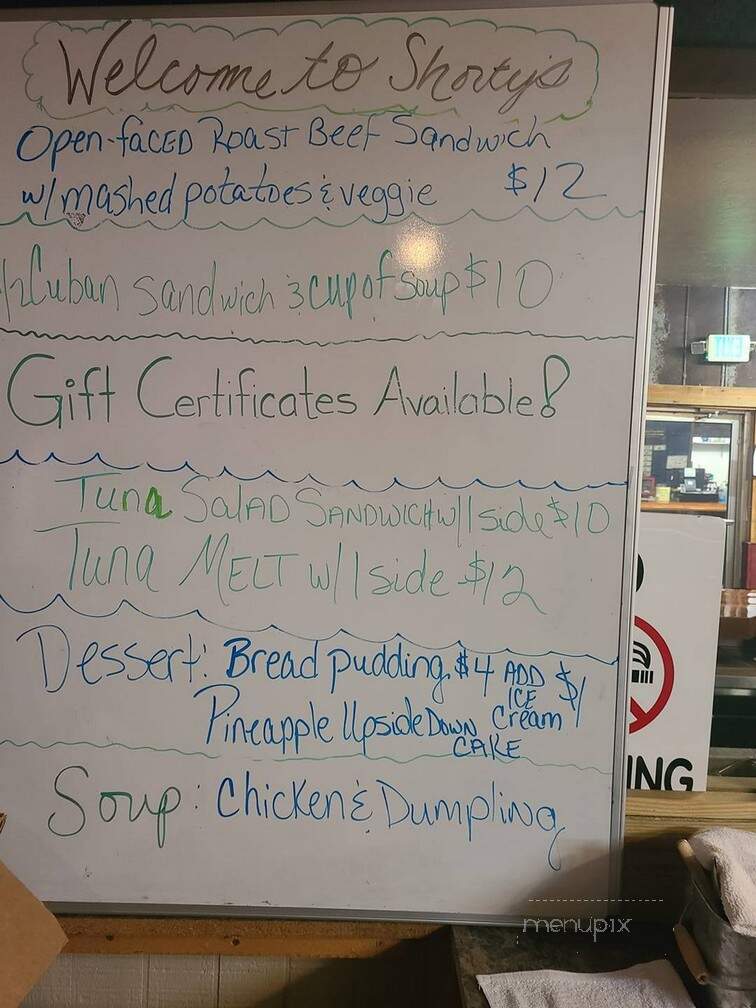 Welcome to Shorty's
Open-faced Roast Beef Sandwich
w/ mashed potatoes & veggie $12
1/2 Cuban sandwich & cup of soup $10
Gift Certificates Available!
Tuna Salad Sandwich w/ 1 side $10
Tuna Melt w/ 1 side $12
Dessert: Bread pudding $4 ADD ICE Cream $1
Pineapple Upside Down CAKE
Soup: Chicken & Dumpling
ING
menupix